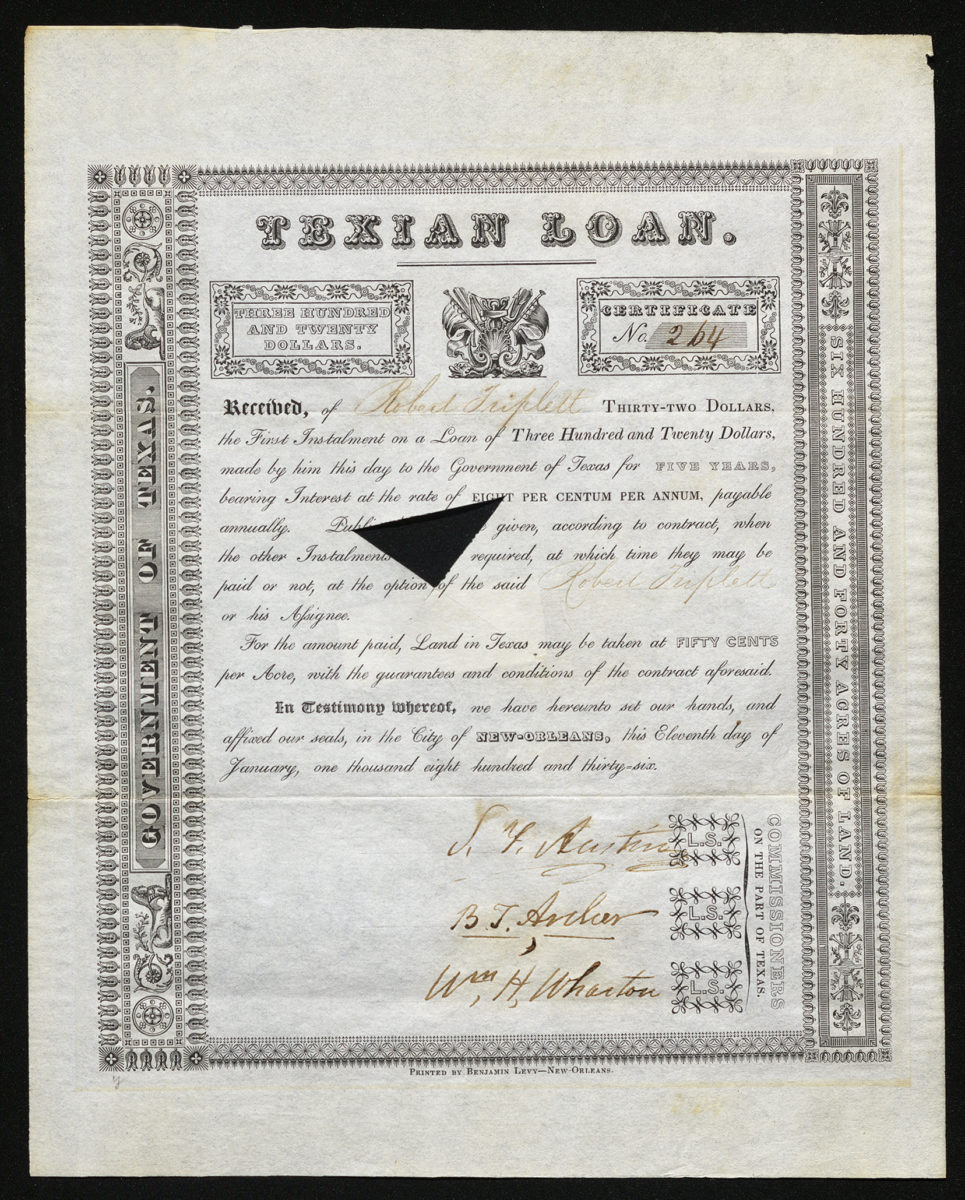 TEXIAN LOAN.
THREE HUNDRED
AND TWENTY
DOLLARS.
CERTIFICATE
No. 264
Received, of Robert Triplett THIRTY-TWO DOLLARS,
the First Instalment on a Loan of Three Hundred and Twenty Dollars,
made by him this day to the Government of Texas for FIVE YEARS,
bearing Interest at the rate of EIGHT PER CENTUM PER ANNUM, payable
annually. given, according to contract, when
the other Instalments required, at which time they may be
paid or not, at the option of the said Robert Triplett
or his Aſsignee.
For the amount paid, Land in Texas may be taken at FIFTY CENTS
per Acre, with the guarantees and conditions of the contract aforesaid.
In Testimony whereof, we have hereunto set our hands, and
affixed our seals, in the City of NEW-ORLEANS, this Eleventh day of
January, one thousand eight hundred and thirty-six.
S. F. Austin L.S.
B. T. Archer L.S.
Wm. H. Wharton L.S.
COMMISSIONERS
ON THE PART OF TEXAS.
GOVERNMENT OF TEXAS.
SIX HUNDRED AND FORTY ACRES OF LAND.
PRINTED BY BENJAMIN LEVY—NEW-ORLEANS.